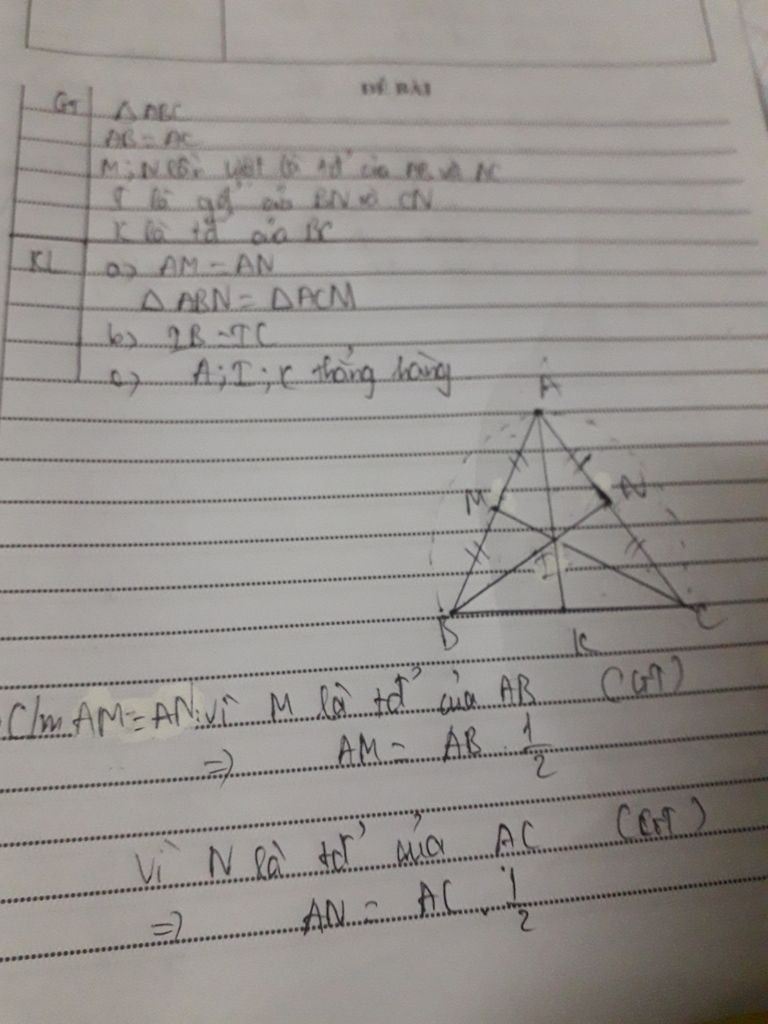 ĐỀ BÀI
GT
Δ ABC
AB = AC
M; N lần lượt là tđ' của AB và AC
I là gđ' của BN và CN
K là tđ' của BC
KL
a> AM = AN
Δ ABN = Δ ACM
b> IB = IC
c> A; I; K thẳng hàng
A
M
N
I
B
K
C
C/m AM = AN: vì M là tđ' của AB (GT)
=> AM = AB . 1/2
Vì N là tđ' của AC (GT)
=> AN = AC . 1/2